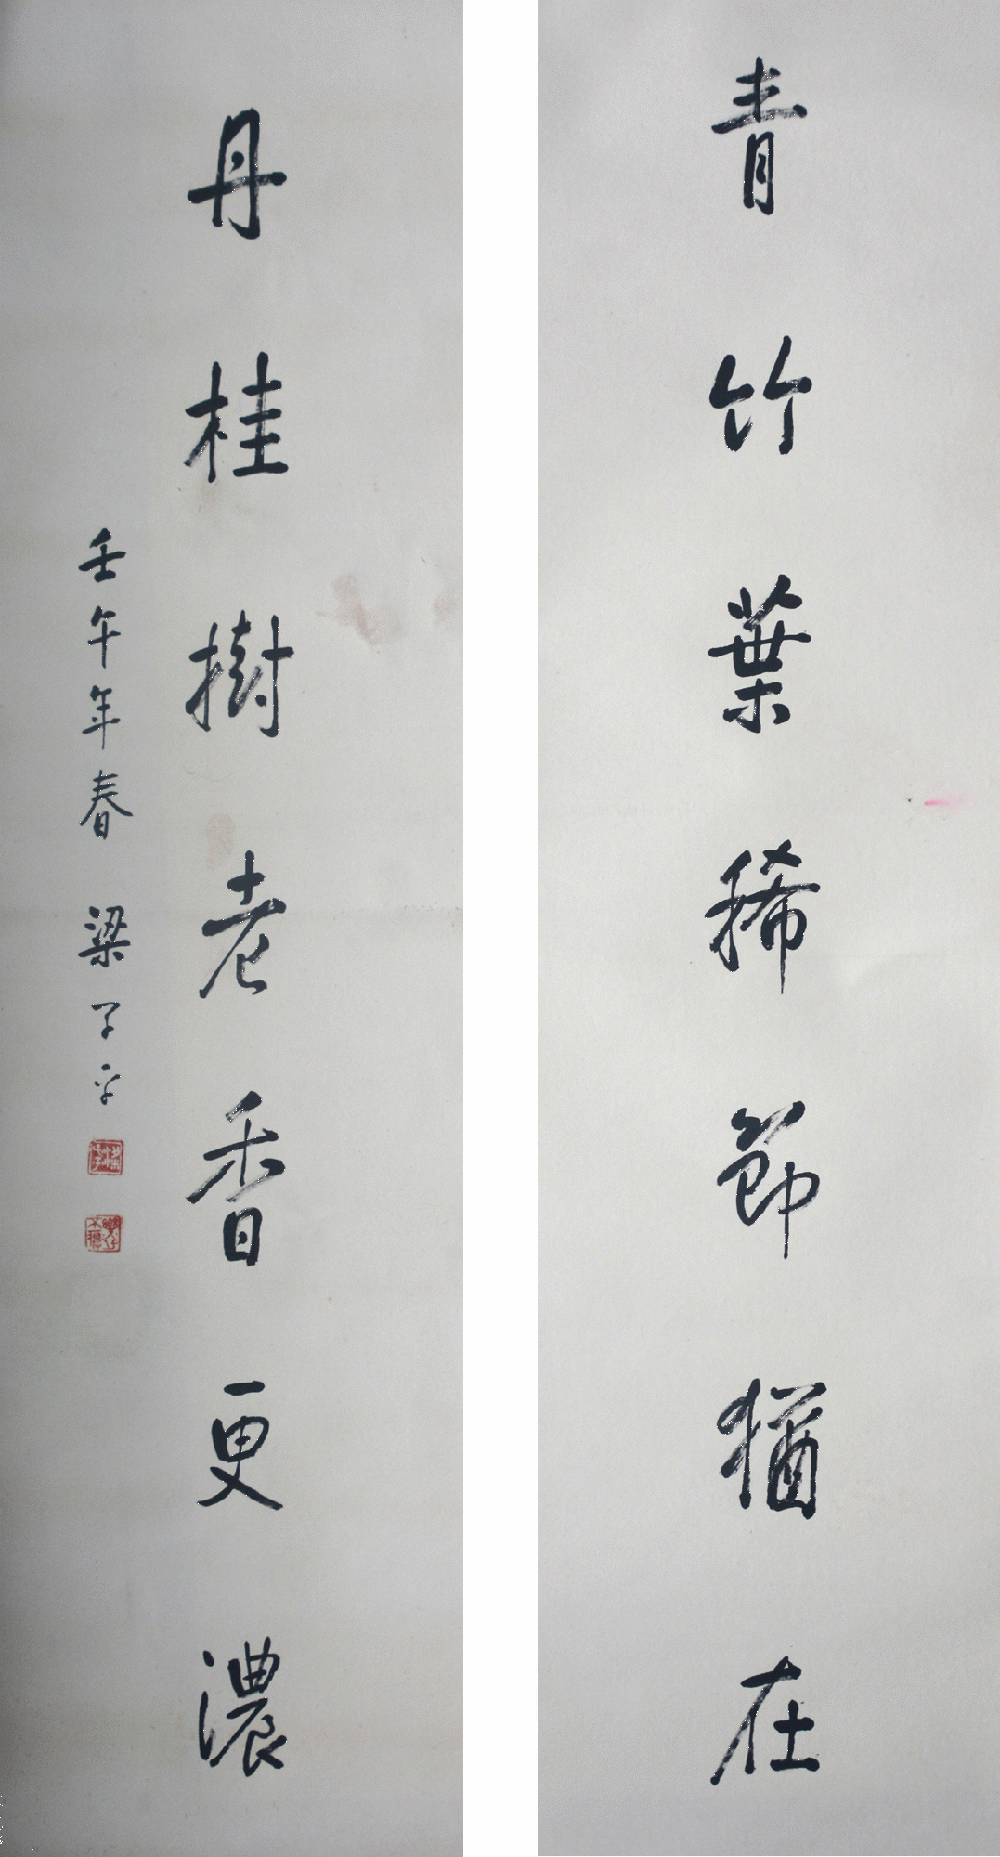 青竹葉稀節猶在
丹桂樹老香更濃
壬午年春 梁子平